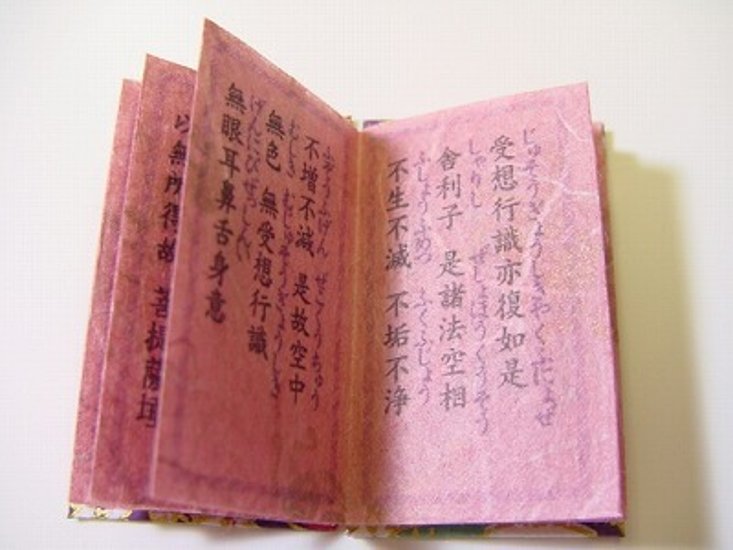 じゅそうぎょうしきやくぶにょぜ
受想行識亦復如是
しゃりし ぜしょほうくうそう
舎利子 是諸法空相
ふしょうふめつ ふくふしょう
不生不滅 不垢不浄
ふぞうふげん ぜこくうちゅう
不増不減 是故空中
むしき むじゅそうぎょうしき
無色 無受想行識
げんにびぜつしんい
無眼耳鼻舌身意
以無所得故 菩提薩埵